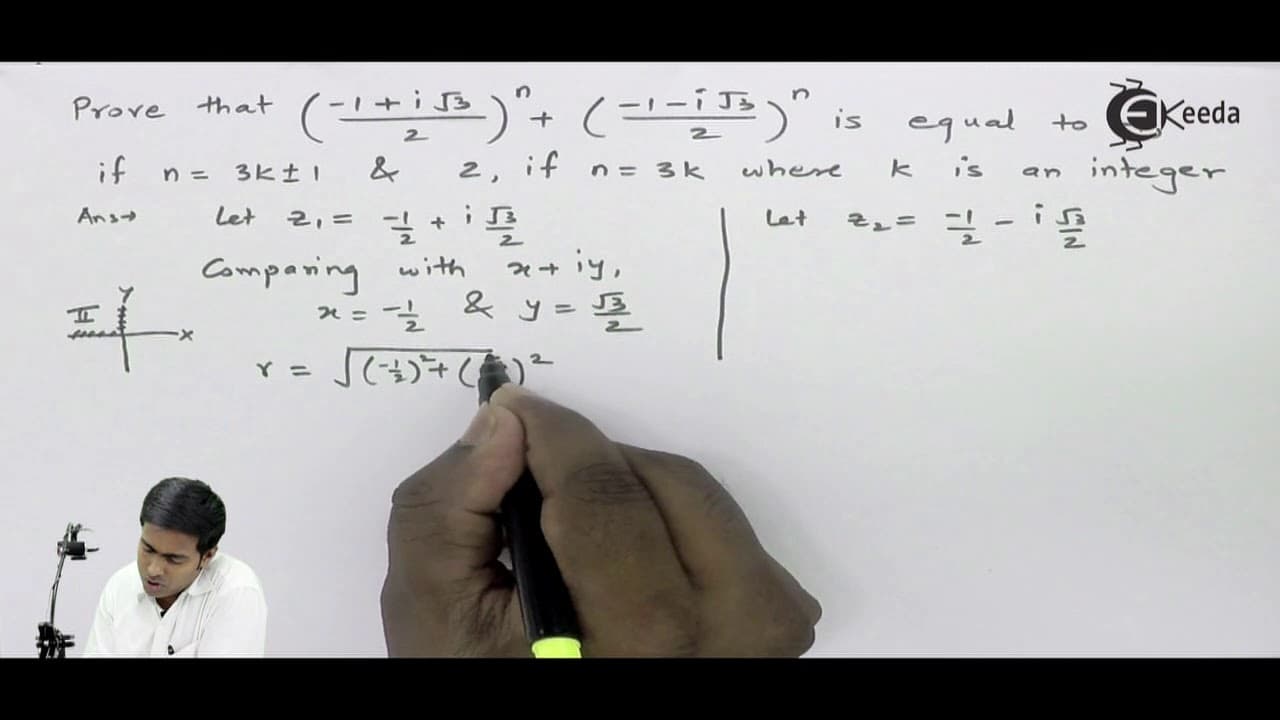 Prove that (\frac{-1+i√3}{2})^n + (\frac{-1-i√3}{2})^n is equal to
Keeda
if n = 3k±1 & 2, if n = 3k where k is an integer
Ans→ Let z₁ = \frac{-1}{2} + i \frac{√3}{2}
Comparing with x+iy,
x = \frac{-1}{2} & y = \frac{√3}{2}
II
Y
X
r = √(-\frac{1}{2})² + ( )²
Let z₂ = \frac{-1}{2} - i \frac{√3}{2}